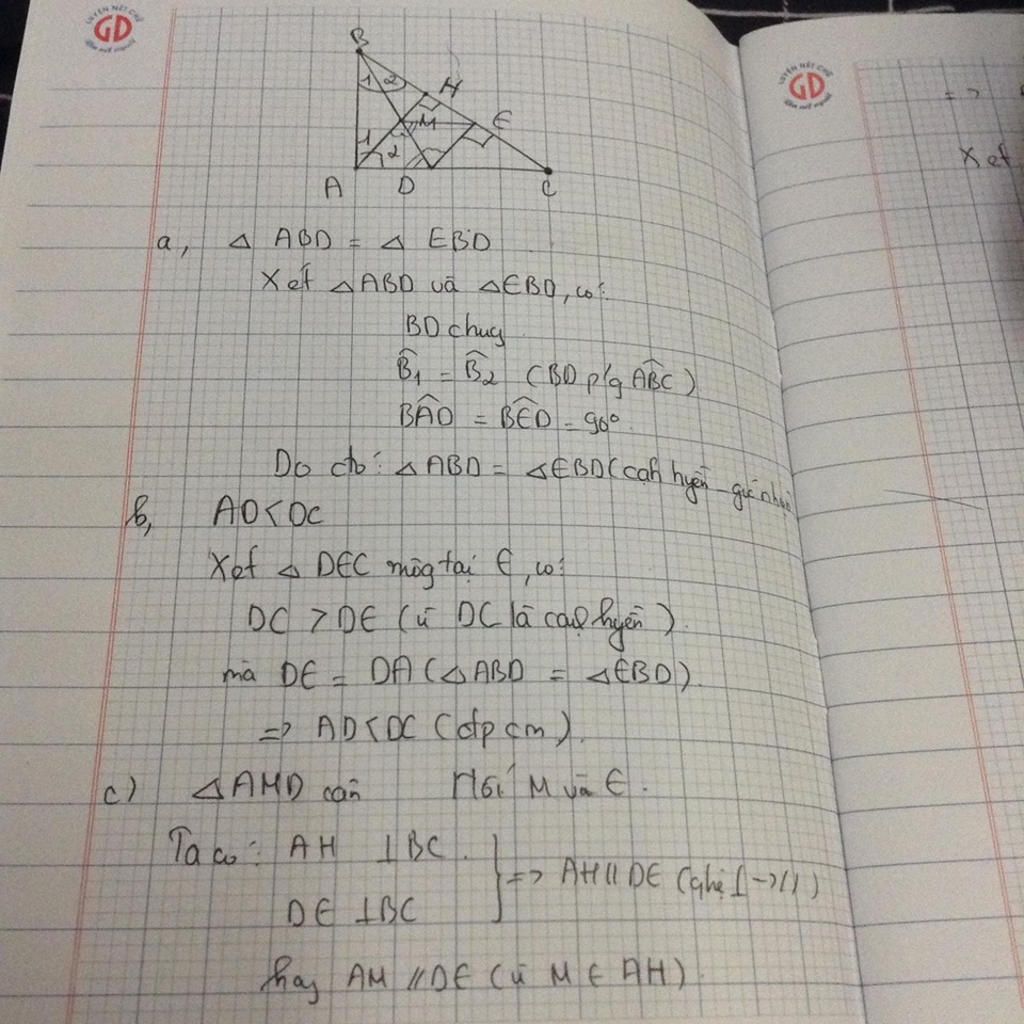 LUYỆN NÉT CHỮ
GD
LUYỆN NÉT CHỮ
GD
B
1 2
H
M
E
1
2
A D C
=>
Xét
a, △ ABD = △ EBD
Xét △ABD và △EBD, có:
BD chung
B̂1 = B̂2 (BD p/g AB̂C)
BÂD = BÊD = 90°
Do đó: △ABD = △EBD (cạnh huyền - góc nhọn
b, AD < DC
Xét △ DEC vuông tại E, có:
DC > DE (vì DC là cạnh huyền).
mà DE = DA (△ABD = △EBD).
=> AD < DC (đpcm).
c) △AMD cân Nối M và E.
Ta có: AH ⊥ BC.
=> AH // DE (⊥ -> //)
DE ⊥ BC
hay AM // DE (vì M ∈ AH)